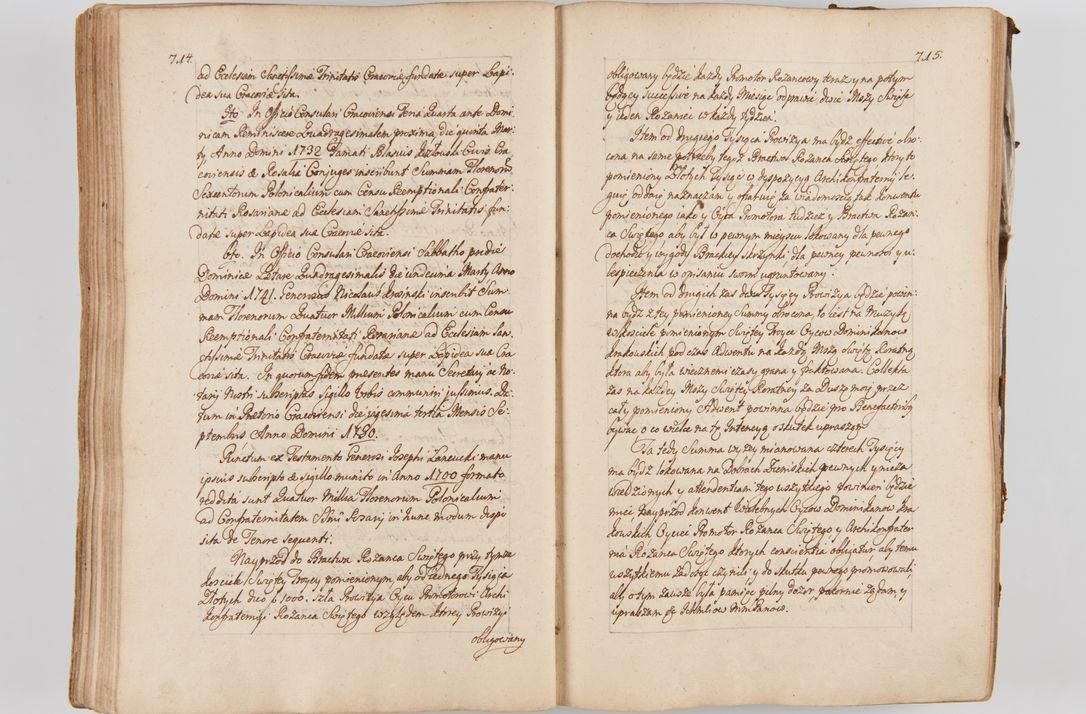 714.
ad Ecclesiam Sanctissimæ Trinitatis Cracoviæ fundatæ super Lapi-
dea sua Cracoviæ sita.
Itt. In Officio Consulari Cracoviensi Feria Quarta ante Domi-
nicam Reminiscere Quadragesimalem proxima die quinta Mar-
tij Anno Domini 1732 Famati Blasius Civis Cra-
coviensis & Rosalia Conjuges inscribunt Summam Florenorũ
Sexcentorum Polonicalium cum Censu Reemptionali Confrater-
nitati Rosarianæ ad Ecclesiam Sanctissimæ Trinitatis fun-
datæ super Lapidea sua Cracoviæ sita.
Itt. In Officio Consulari Cracoviensi Sabbatho pridie
Dominicæ Lætare Quadragesimalis die undecima Martij Anno
Domini 1741. Generosus Nicolaus inscribit Sum-
mam Florenorum Quatuor Millium Polonicalium cum Censu
Reemptionali Confraternitati Rosarianæ ad Ecclesiam San-
ctissimæ Trinitatis Cracoviæ fundatæ super Lapidea sua Cra-
coviæ sita. In quorum fidem præsentes manu Secretarij ac No-
tarij Nostri subscriptas Sigillo Urbis communiri jussimus. Da-
tum in Prætorio Cracoviensi die vigesima tertia Mensis Se-
ptembris Anno Domini 1790.
Punctum ex Testamento Generosi Josephi Zancucki manu
ipsius subscripto & sigillo munito in Anno 1700 formato
reddita sunt Quatuor Millia Florenorum Polonicalium
ad Confraternitatem SSmi Rosarij in hunc modum dispo-
sita de Tenore Sequenti.
Nayprzod do Bractwa Rożanca Swiętego przy tymże
Kosciele Swiętey Troycy pomienionym, aby od iednego Tysiąca
Złotych dico f. 1000. szła Prowizja Oycu Promotorowi Archi-
Konfraternij Rożanca Swiętego względem ktorey Prowizyi
obligowany
715.
obligowany będzie każdy Promotor Rożancowy teraz y na potym
będący successive na każdy Miesiąc odprawić dwie Mszy Swięte
y ieden Rożaniec w każdy tydzien.
Item od drugiego Tysiąca Prowizya ma bydź effective obro-
cona na same potrzeby tegoż Bractwa Rożanca Swiętego ktory to
pomieniony Złotych Tysiąc w dyspozycyą Archikonfraternij te-
guj oddaię naznaczam y ofiaruię za wiadomoscią tak Konwentu
pomienionego iako y Oyca Promotora tudziez y Bractwa Rożan-
ca Swiętego aby był w pewnym mieyscu lokowany dla pewnego
dochodu y wygody Brackiey Skrzynki dla pewney pewnosci y u-
bespieczenia w opisaniu swoim ugruntowany.
Item od drugich zas dwu Tysięcy Prowizya będzie powin-
na bydz z tey pomienioney Summy obrocona to iest na Muzykę
w Kosciele pomienionym Swiętey Troyce Oycow Dominikanow
Krakowskich pod czas Adwentu na każdą Mszą Swiętą Roratną
ktora aby była wiecznemi czasy grana y traktowana. Collekta
zas na każdey Mszy Swiętey Roratney za Duszę moię przez
cały pomieniony Adwent powinna będzie pro Benefactoribus
bywac o co wielce na tę Intencyą o skutek upraszam
Ta tedy Summa wyzey mianowana czterech Tysięcy
ma bydz lokowana na Dobrach Ziemskich pewnych y nieza-
wiedzionych y attendentiam tego wszytkiego powinien będzie
mieć Nayprzod Konwent Wielebnych Oycow Dominikanow Kra-
kowskich Oyciec Promotor Rożanca Swiętego y Archikonfrater-
nia Rożanca Swiętego ktorych conscientia obligatur, aby temu
wszytkiemu zadosyć czynili y do skutku pewnego promowowali,
aby o tym zawsze była pamięc pilny dozor, pokornie żądam y
upraszam Ich Mosciow Panow.